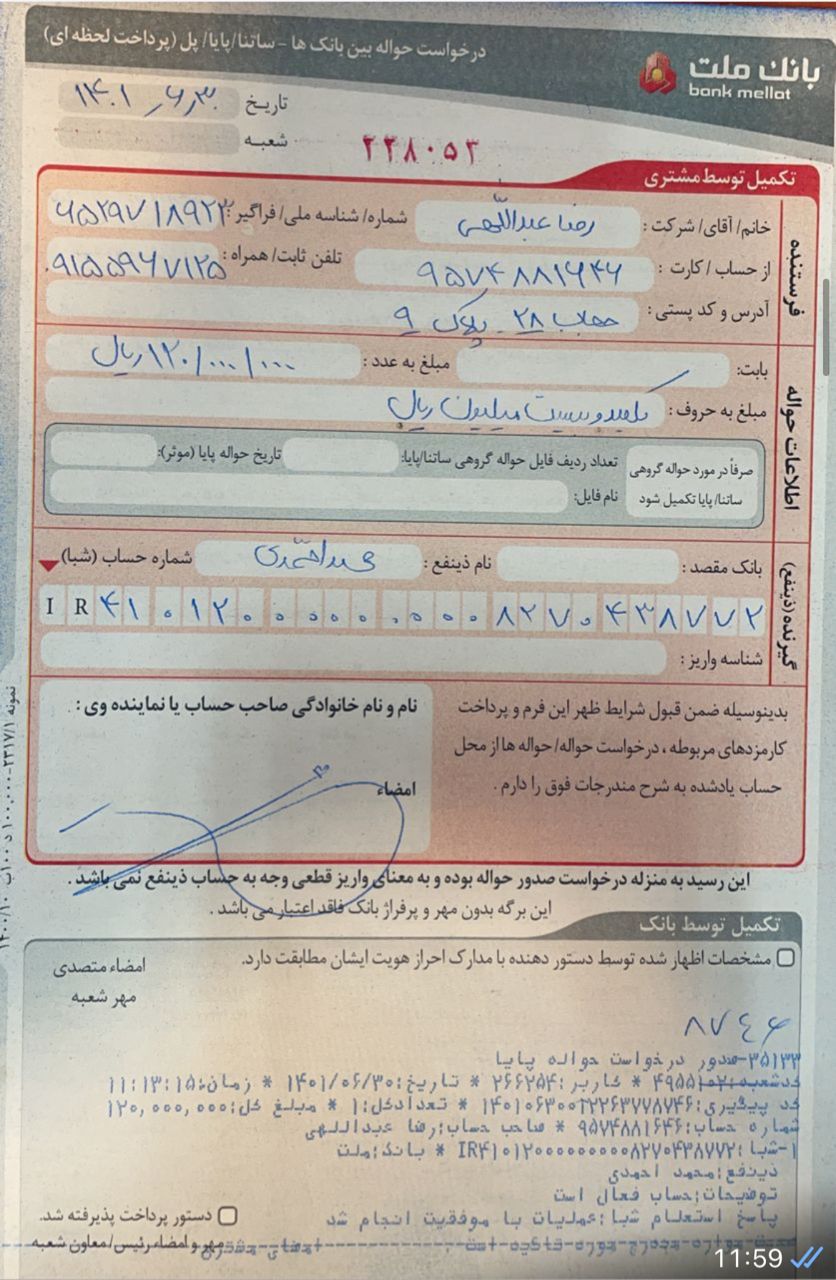 درخواست حواله بین بانک ها - ساتنا/پایا/ پل (پرداخت لحظه ای)
بانک ملت
bank mellat
تاریخ ۱۴۰۱/۶/۳۰
شعبه
۲۲۸۰۵۳
تکمیل توسط مشتری
فرستنده
خانم/ آقای/ شرکت : رضا عبداللهی شماره/ شناسه ملی/ فراگیر :
از حساب / کارت : ۹۵۷۴۸۸۱۶۴۶ تلفن ثابت/ همراه : ۰۹۱۵۵۹۶۷۱۲۵
آدرس و کد پستی : ۲۸ پلاک ۹
اطلاعات حواله
بابت: مبلغ به عدد : ۱۲۰/۰۰۰/۰۰۰ ریال
مبلغ به حروف : یکصد و بیست میلیون ریال
صرفاً در مورد حواله گروهی ساتنا/ پایا تکمیل شود
تعداد ردیف فایل حواله گروهی ساتنا/پایا: تاریخ حواله پایا (موثر):
نام فایل:
گیرنده (ذینفع)
بانک مقصد : نام ذینفع : محمد احمدی شماره حساب (شبا)
IR ۴۱۰۱۲۰۰۰۰۰۰۰۰۰۰۸۲۷۰۴۳۸۷۷۲
شناسه واریز :
بدینوسیله ضمن قبول شرایط ظهر این فرم و پرداخت
کارمزدهای مربوطه ، درخواست حواله/ حواله ها از محل
حساب یادشده به شرح مندرجات فوق را دارم .
نام و نام خانوادگی صاحب حساب یا نماینده وی :
امضاء
این رسید به منزله درخواست صدور حواله بوده و به معنای واریز قطعی وجه به حساب ذینفع نمی باشد .
این برگه بدون مهر و پرفراژ بانک فاقد اعتبار می باشد .
تکمیل توسط بانک
مشخصات اظهار شده توسط دستور دهنده با مدارک احراز هویت ایشان مطابقت دارد.
امضاء متصدی
مهر شعبه
۸۷۴۶
۳۵۱۳۳-صدور درخواست حواله پایا
کدشعبه: * کاربر:۲۶۶۲۵۴ * تاریخ:۱۴۰۱/۰۶/۳۰ * زمان:۱۱:۱۳:۱۵
کد پیگیری:۱۴۰۱۰۶۳۰۰۱۲۲۶۳۷۷۸۷۴۶ * تعدادکل:۱ * مبلغ کل:۱۲۰,۰۰۰,۰۰۰
شماره حساب:۹۵۷۴۸۸۱۶۴۶ * صاحب حساب:رضا عبداللهی
۱-شبا:IR۴۱۰۱۲۰۰۰۰۰۰۰۰۰۰۸۲۷۰۴۳۸۷۷۲ * بانک:ملت
ذینفع:محمد احمدی
توضیحات:حساب فعال است
پاسخ استعلام شبا:عملیات با موفقیت انجام شد
دستور پرداخت پذیرفته شد.
مهر و امضاء رئیس/ معاون شعبه
11:59